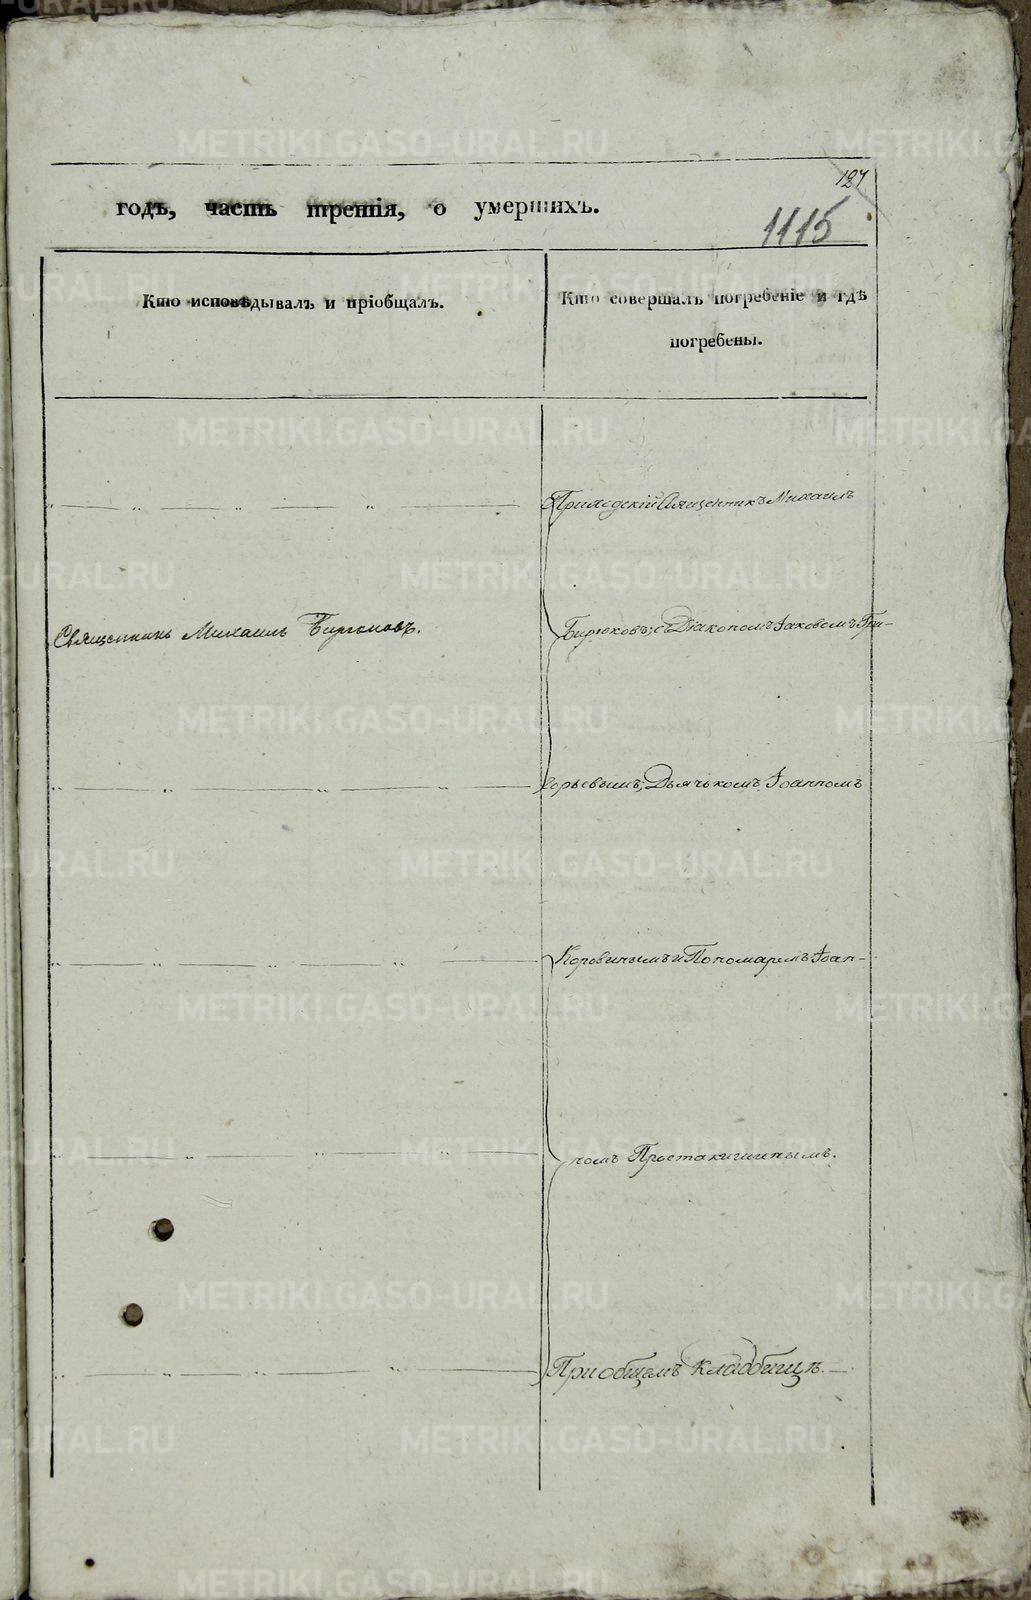 127
годъ, часть третія, о умершихъ.
1115
Кто исповѣдывалъ и пріобщалъ.
Кто совершалъ погребеніе и гдѣ
погребены.
Приходскій Священникъ Михаилъ
Священникъ Михаилъ Бирюковъ.
Бирюковъ, съ Діакономъ Іаковомъ Гри-
горьевымъ, Дьячькомъ Іоанномъ
Коровинымъ и Пономаремъ Іоан-
номъ Простакишинымъ.
При общемъ кладбищѣ.
METRIKI.GASO-URAL.RU